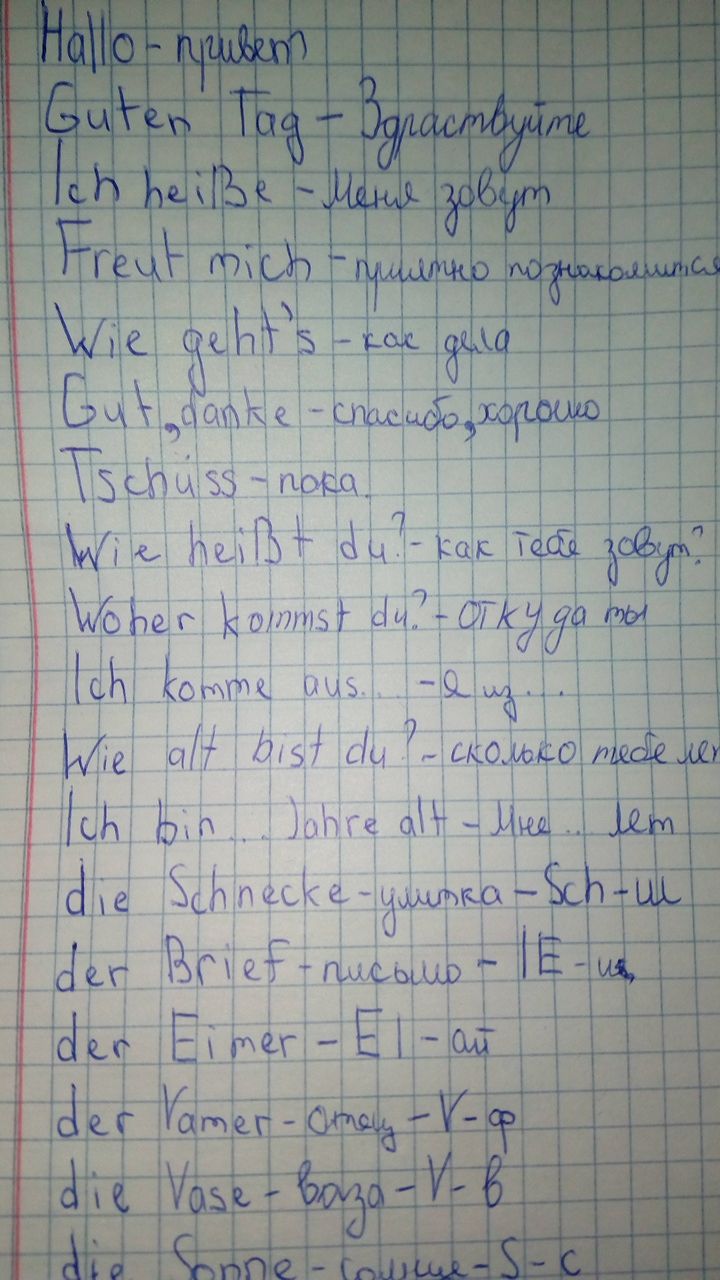 Hallo - привет
Guten Tag - Здраствуйте
Ich heiße - меня зовут
Freut mich - приятно познакомится
Wie geht's - как дела
Gut, danke - спасибо, хорошо
Tschüss - пока.
Wie heißt du? - как тебе зовут?
Woher kommst du? - откуда ты
Ich komme aus... - Я из...
Wie alt bist du? - сколько тебе лет
Ich bin... Jahre alt - Мне... лет
die Schnecke - улитка - Sch - ш
der Brief - письмо - IE - и
der Eimer - EI - ай
der Vamer - отец - V - ф
die Vase - ваза - V - в
die Sonne - солнце - S - с